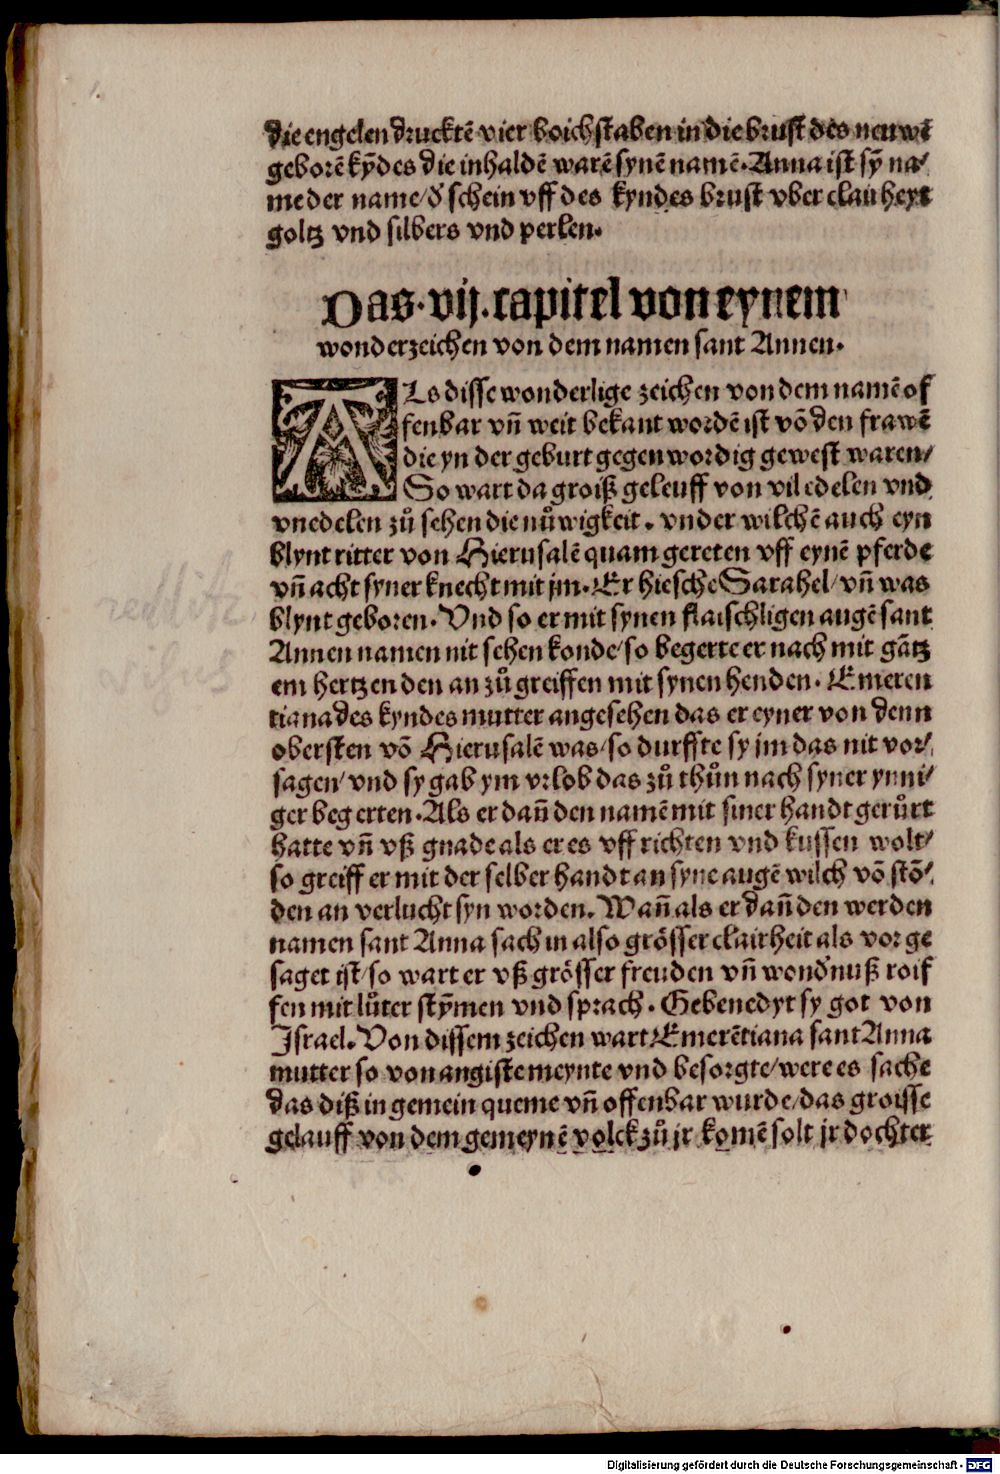 die engelen drucktē vier boichstaben in die brust des neuwē
geborē kȳdes die inhaldē warē synē namē. Anna ist sȳ na/
me der name/ď schein vff des kyndes brust vber clairheyt
goltz vnd silbers vnd perlen.
Das .vij. capitel von eynem
wonderzeichen von dem namen sant Annen.
ALs disse wonderlige zeichen von dem namē of
fenbar vñ weit bekant wordē ist vō den frawē
die yn der geburt gegenwordig gewest waren/
So wart da groiß geleuff von vil edelen vnd
vnedelen zů sehen die nůwigkeit. vnder wilchē auch eyn
blynt ritter von Hierusalē quam gereten vff eynē pferde
vñ acht syner knecht mit jm. Er hiesche Sarahel/vñ was
blynt geboren. Vnd so er mit synen flaischligen augē sant
Annen namen nit sehen konde/so begerte er nach mit gātz
em hertzen den an zů greiffen mit synen henden. Emeren
tiana des kyndes mutter angesehen das er eyner von denn
obersten vō Hierusalē was/so durffte sy jm das nit vor/
sagen/vnd sy gab ym vrlob das zů thůn nach syner ynni/
ger begerten. Als er dañ den namē mit siner handt gerůrt
hatte vñ vß gnade als er es vff richten vnd kussen wolt/
so greiff er mit der selber handt an syne augē wilch vō stō/
den an verlucht syn worden. Wañ als er dañ den werden
namen sant Anna sach in also grösser clairheit als vor ge
saget ist/so wart er vß grösser freuden vñ wonďnuß roif
fen mit lůter stȳmen vnd sprach. Gebenedyt sy got von
Israel. Von dissem zeichen wart Emerētiana sant Anna
mutter so von angiste meynte vnd besorgte/were es sache
das diß in gemein queme vñ offenbar wurde/das groisse
gelauff von dem gemeynē volck zů jr komē solt jr dochter
reddit
visus
Digitalisierung gefördert durch die Deutsche Forschungsgemeinschaft - DFG